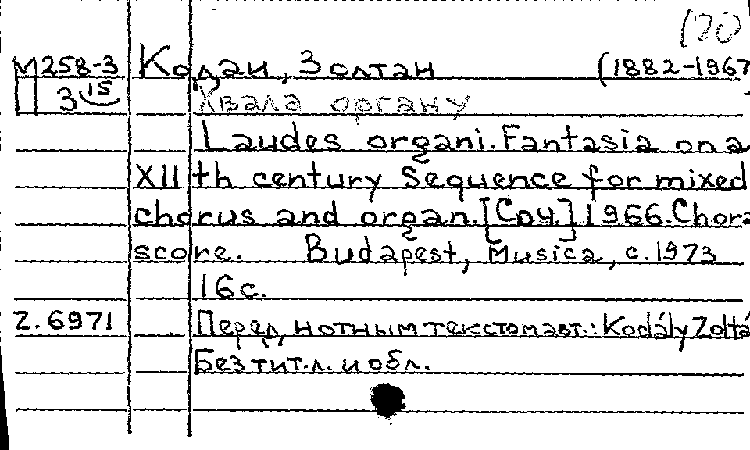 120
М258-3 Кодаи, Золтан (1882-1967
П 3 15 Хвала органу
Laudes organi. Fantasia on a
XII th century Sequence for mixed
chorus and organ. [Соч.] 1966. Chora
score. Budapest, Musica, c. 1973
16 с.
Z. 6971 Перед нотным текстом авт.: Kodály Zoltá
Без тит. л. и обл.